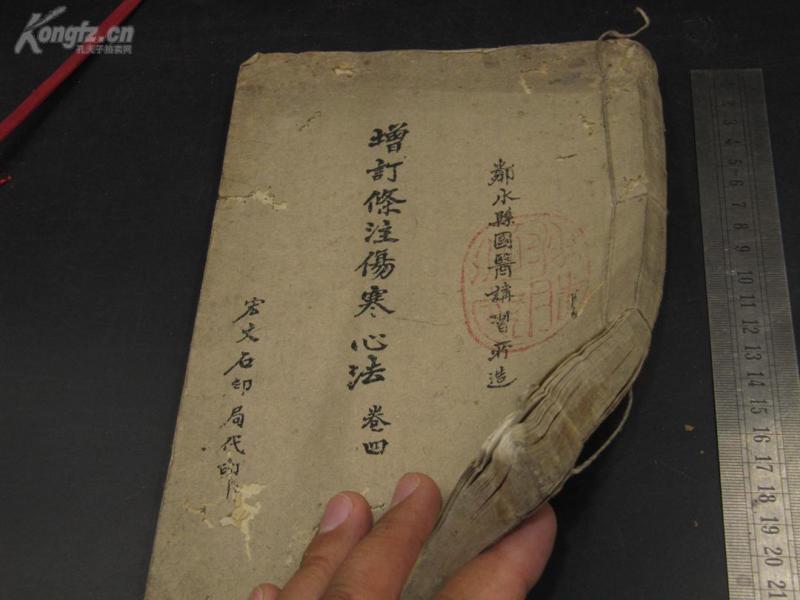 鄰水縣國醫講習所造
增訂條注傷寒心法 卷四
宏文石印局代印
Kongfz.cn
孔夫子拍卖网
2 3 4 5 6 7 8 9 10 11 12 13 14 15 16 17 18 19 20 21